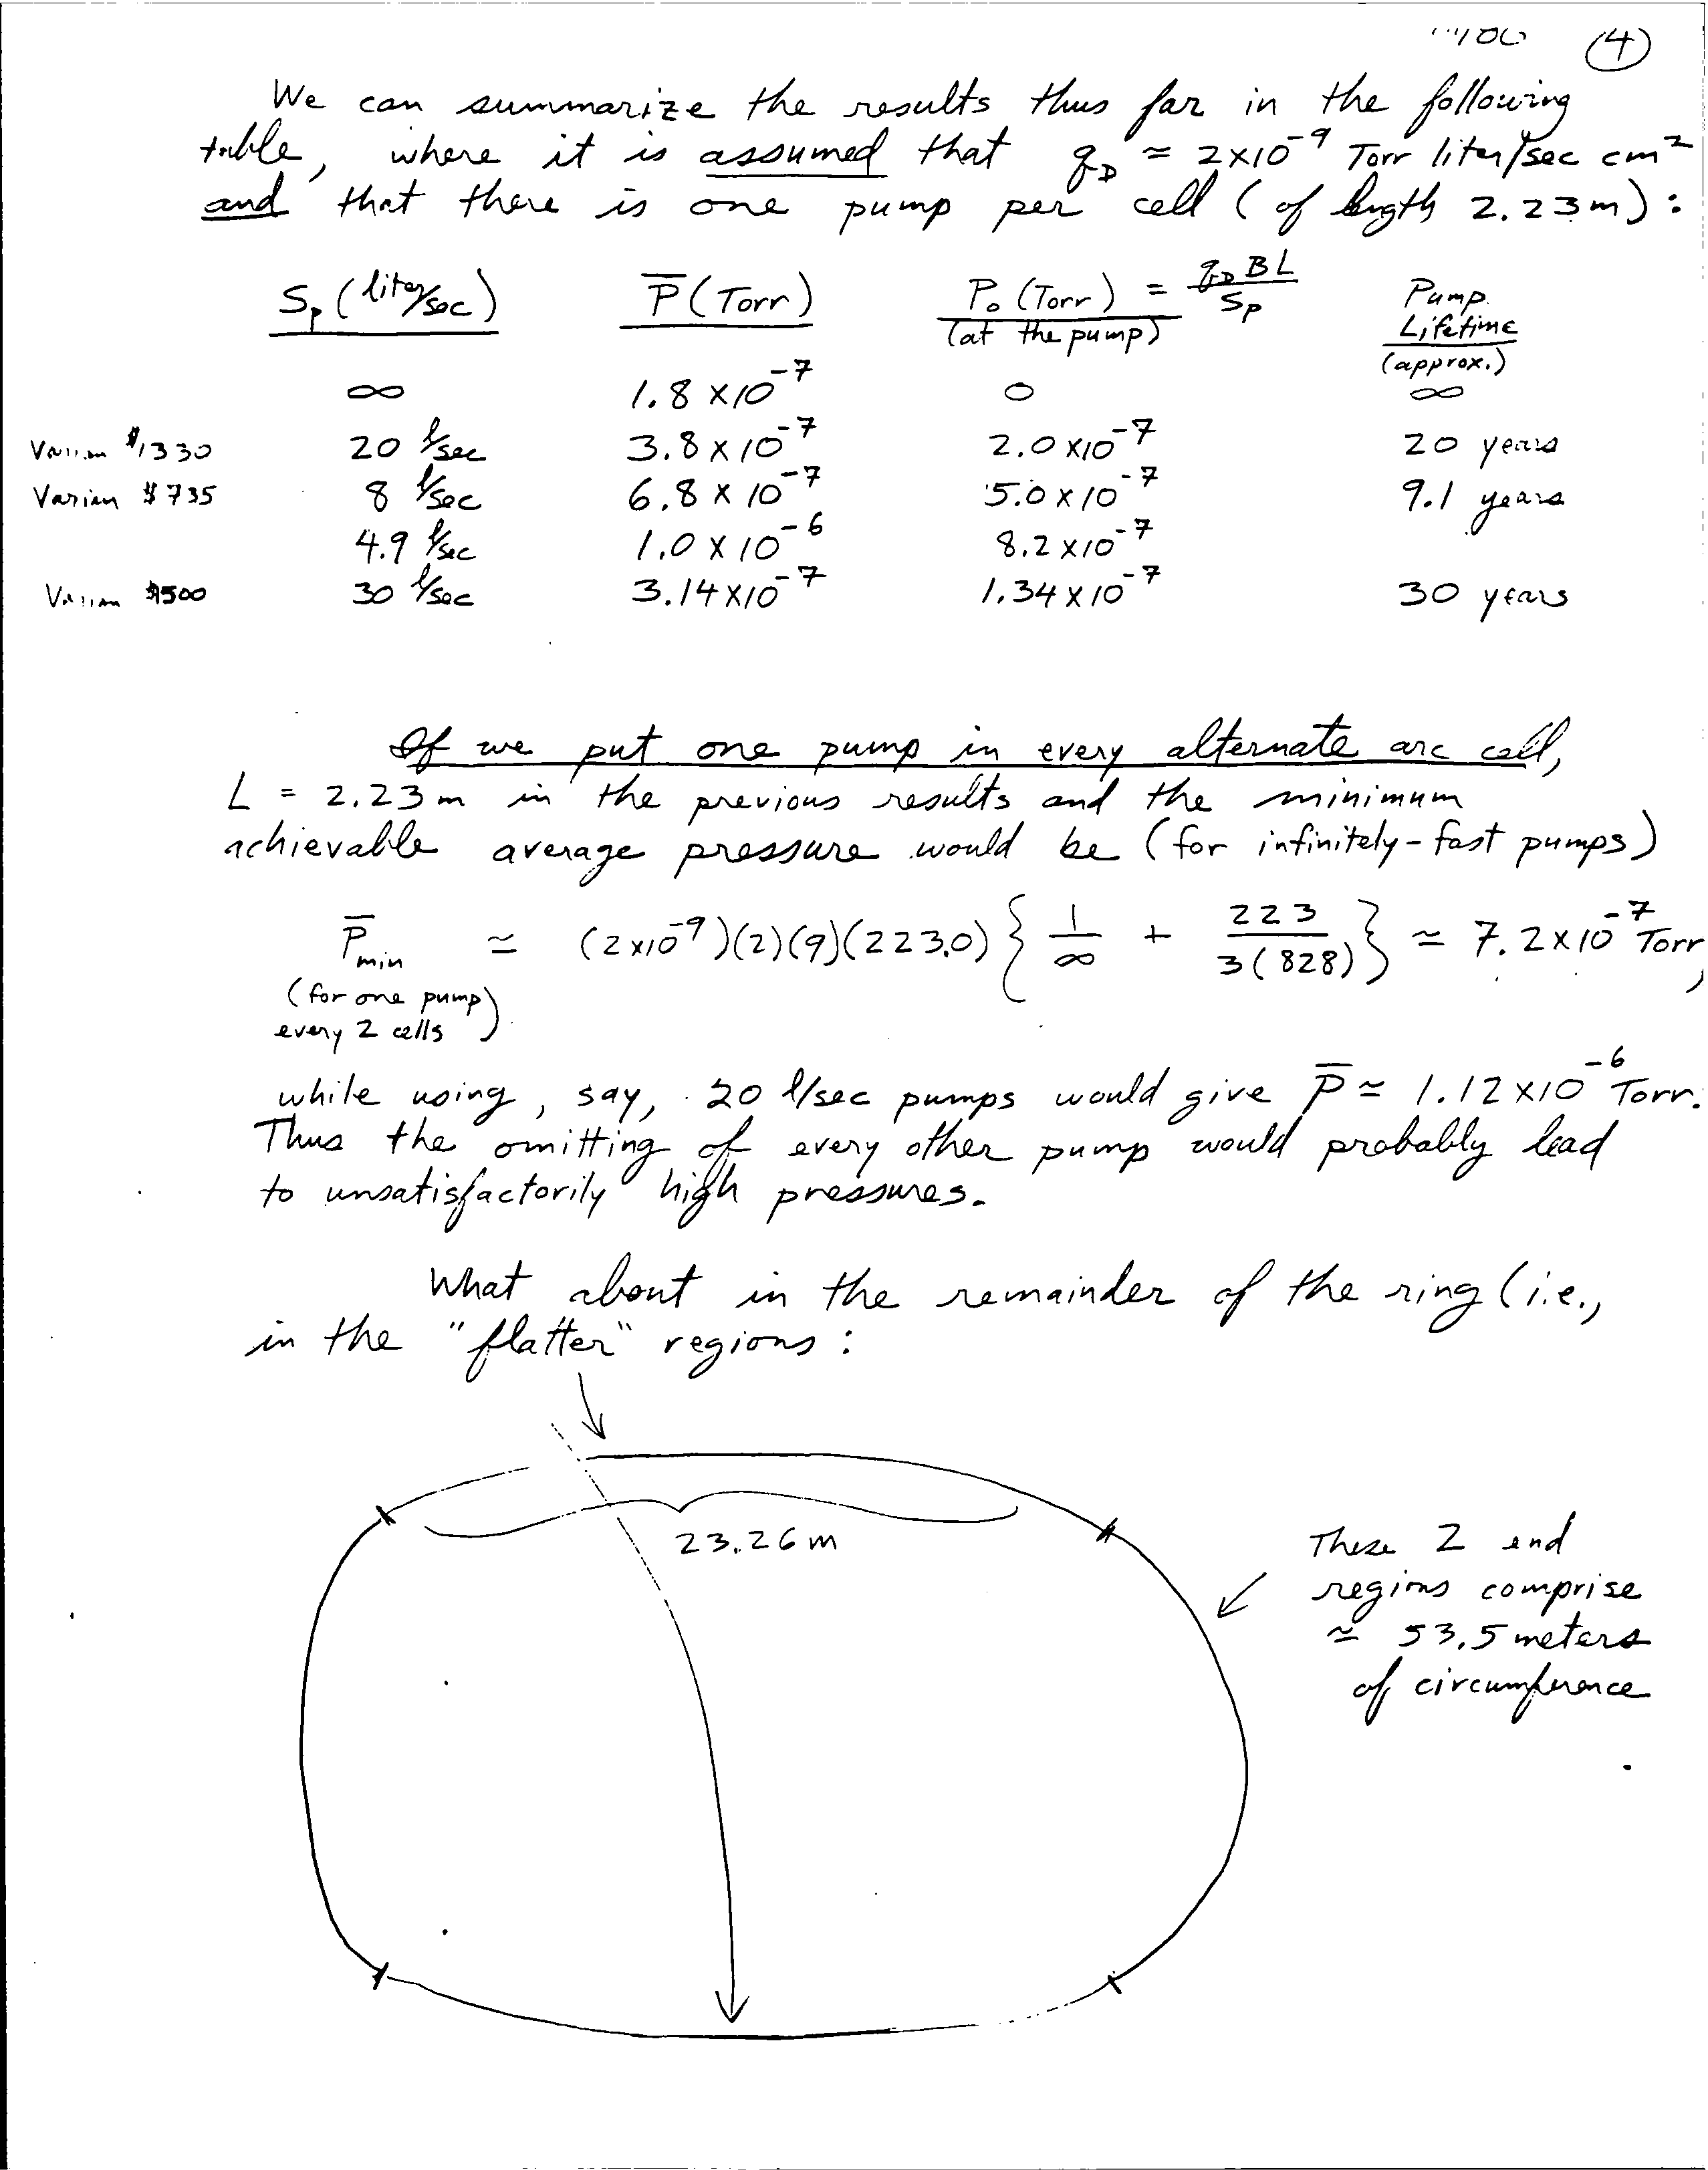 ④
We can summarize the results thus far in the following
table, where it is assumed that q_D ≈ 2×10⁻⁹ Torr liter/sec cm²
and that there is one pump per cell (of length 2.23m):
S_p (liter/sec) P̅ (Torr) P₀ (Torr) = q_D BL / S_p Pump Lifetime
(at the pump) (approx.)
∞ 1.8 ×10⁻⁷ 0 ∞
Varian $1330 20 ℓ/sec 3.8 ×10⁻⁷ 2.0 ×10⁻⁷ 20 years
Varian $735 8 ℓ/sec 6.8 × 10⁻⁷ 5.0 × 10⁻⁷ 9.1 years
4.9 ℓ/sec 1.0 × 10⁻⁶ 8.2 ×10⁻⁷
Varian $1500 30 ℓ/sec 3.14 ×10⁻⁷ 1.34 × 10⁻⁷ 30 years
If we put one pump in every alternate arc cell,
L = 2.23m in the previous results and the minimum
achievable average pressure would be (for infinitely-fast pumps)
P̅_min ≃ (2×10⁻⁹)(2)(9)(223.0) { 1/∞ + 223/3(828) } ≃ 7.2×10⁻⁷ Torr,
(for one pump
every 2 cells)
while using, say, 20 l/sec pumps would give P̅ ≃ 1.12 ×10⁻⁶ Torr.
Thus the omitting of every other pump would probably lead
to unsatisfactorily high pressures.
What about in the remainder of the ring (i.e.,
in the "flatter" regions:
23.26 m
These 2 end
regions comprise
≃ 53.5 meters
of circumference